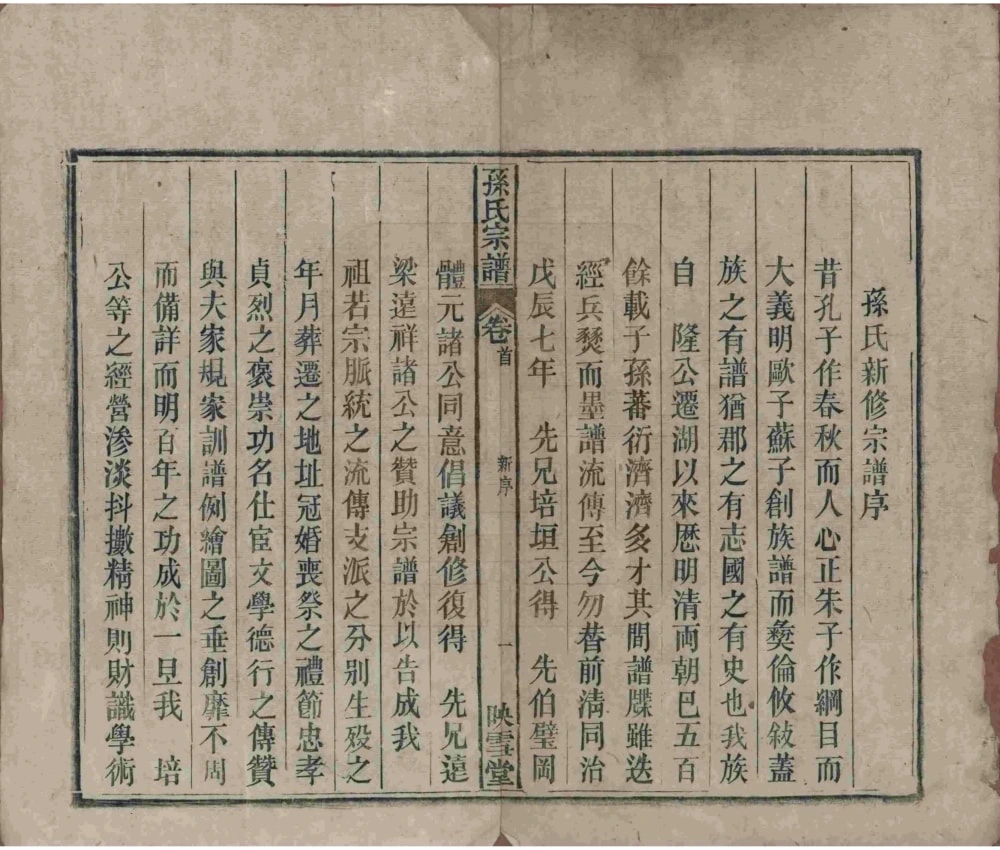 孫氏新修宗譜序
昔孔子作春秋而人心正朱子作綱目而
大義明歐子蘇子創族譜而彜倫攸敍蓋
族之有譜猶郡之有志國之有史也我族
自　隆公遷湖以來歷明清両朝巳五百
餘載子孫蕃衍濟濟多才其間譜牒雖迭
經兵燹而墨譜流傳至今勿替前淸同治
戊辰七年　先兄培垣公得　先伯璧岡
孫氏宗譜
卷首
新序
一
映雪堂
體元諸公同意倡議創修復得　先兄遠
梁遠祥諸公之贊助宗譜於以告成我
祖若宗脈統之流傳支派之分别生殁之
年月葬遷之地址冠婚喪祭之禮節忠孝
貞烈之褒崇功名仕宦文學德行之傳贊
與夫家規家訓譜例繪圖之垂創靡不周
而備詳而明百年之功成於一旦我　培
公等之經營滲淡抖擻精神則財識學術